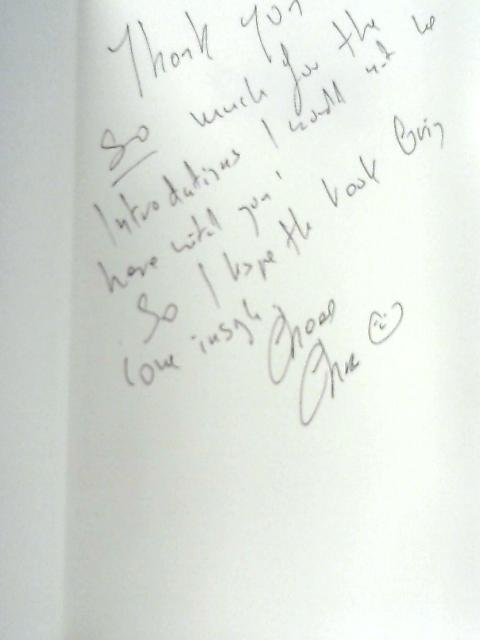 Thank you
So much for the
Introductions I would not be
here witout you!
So I hope the book Bring
some insight
Cheers